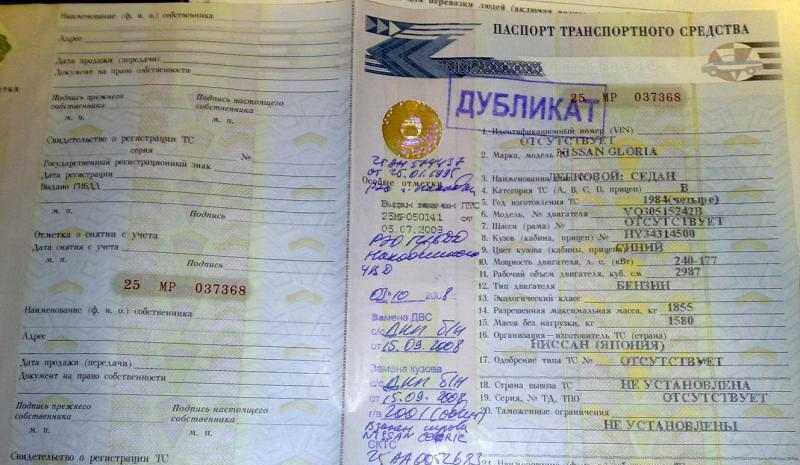 Наименование (ф. и. о.) собственника
Адрес
Дата продажи (передачи)
Документ на право собственности
Подпись прежнего собственника
Подпись настоящего собственника
м. п.
м. п.
Свидетельство о регистрации ТС
серия
№
Государственный регистрационный знак
Дата регистрации
Выдано ГИБДД
м. п.
Подпись
Отметка о снятии с учета
Дата снятия с учета
м. п.
Подпись
25 МР 037368
Наименование (ф. и. о.) собственника
Адрес
Дата продажи (передачи)
Документ на право собственности
Подпись прежнего собственника
Подпись настоящего собственника
м. п.
м. п.
Свидетельство о регистрации ТС
ПАСПОРТ ТРАНСПОРТНОГО СРЕДСТВА
ДУБЛИКАТ
25 МР 037368
1. Идентификационный номер (VIN)
ОТСУТСТВУЕТ
2. Марка, модель
NISSAN GLORIA
3. Наименование
ЛЕГКОВОЙ: СЕДАН
4. Категория ТС (А, В, С, D, прицеп) В
5. Год изготовления ТС 1984(четыре)
6. Модель, № двигателя VQ30515242B
7. Шасси (рама) № ОТСУТСТВУЕТ
8. Кузов (кабина, прицеп) № HY34314500
9. Цвет кузова (кабины, прицепа) СИНИЙ
10. Мощность двигателя, л. с. (кВт) 240-177
11. Рабочий объем двигателя, куб. см 2987
12. Тип двигателя БЕНЗИН
13. Экологический класс
14. Разрешенная максимальная масса, кг 1855
15. Масса без нагрузки, кг 1580
16. Организация — изготовитель ТС (страна)
НИССАН (ЯПОНИЯ)
17. Одобрение типа ТС № ОТСУТСТВУЕТ
18. Страна вывоза ТС НЕ УСТАНОВЛЕНА
19. Серия, № ТД, ТПО ОТСУТСТВУЕТ
20. Таможенные ограничения
НЕ УСТАНОВЛЕНЫ
Особые отметки
Выдан взамен ПТС
25МР050141
05.07.2009
Замена ДВС
с/с ДКП б/н
от 15.09.2008
Замена кузова
с/с ДКП б/н
от 15.09.2008
г/в 2001
NISSAN CEDRIC
СКТС